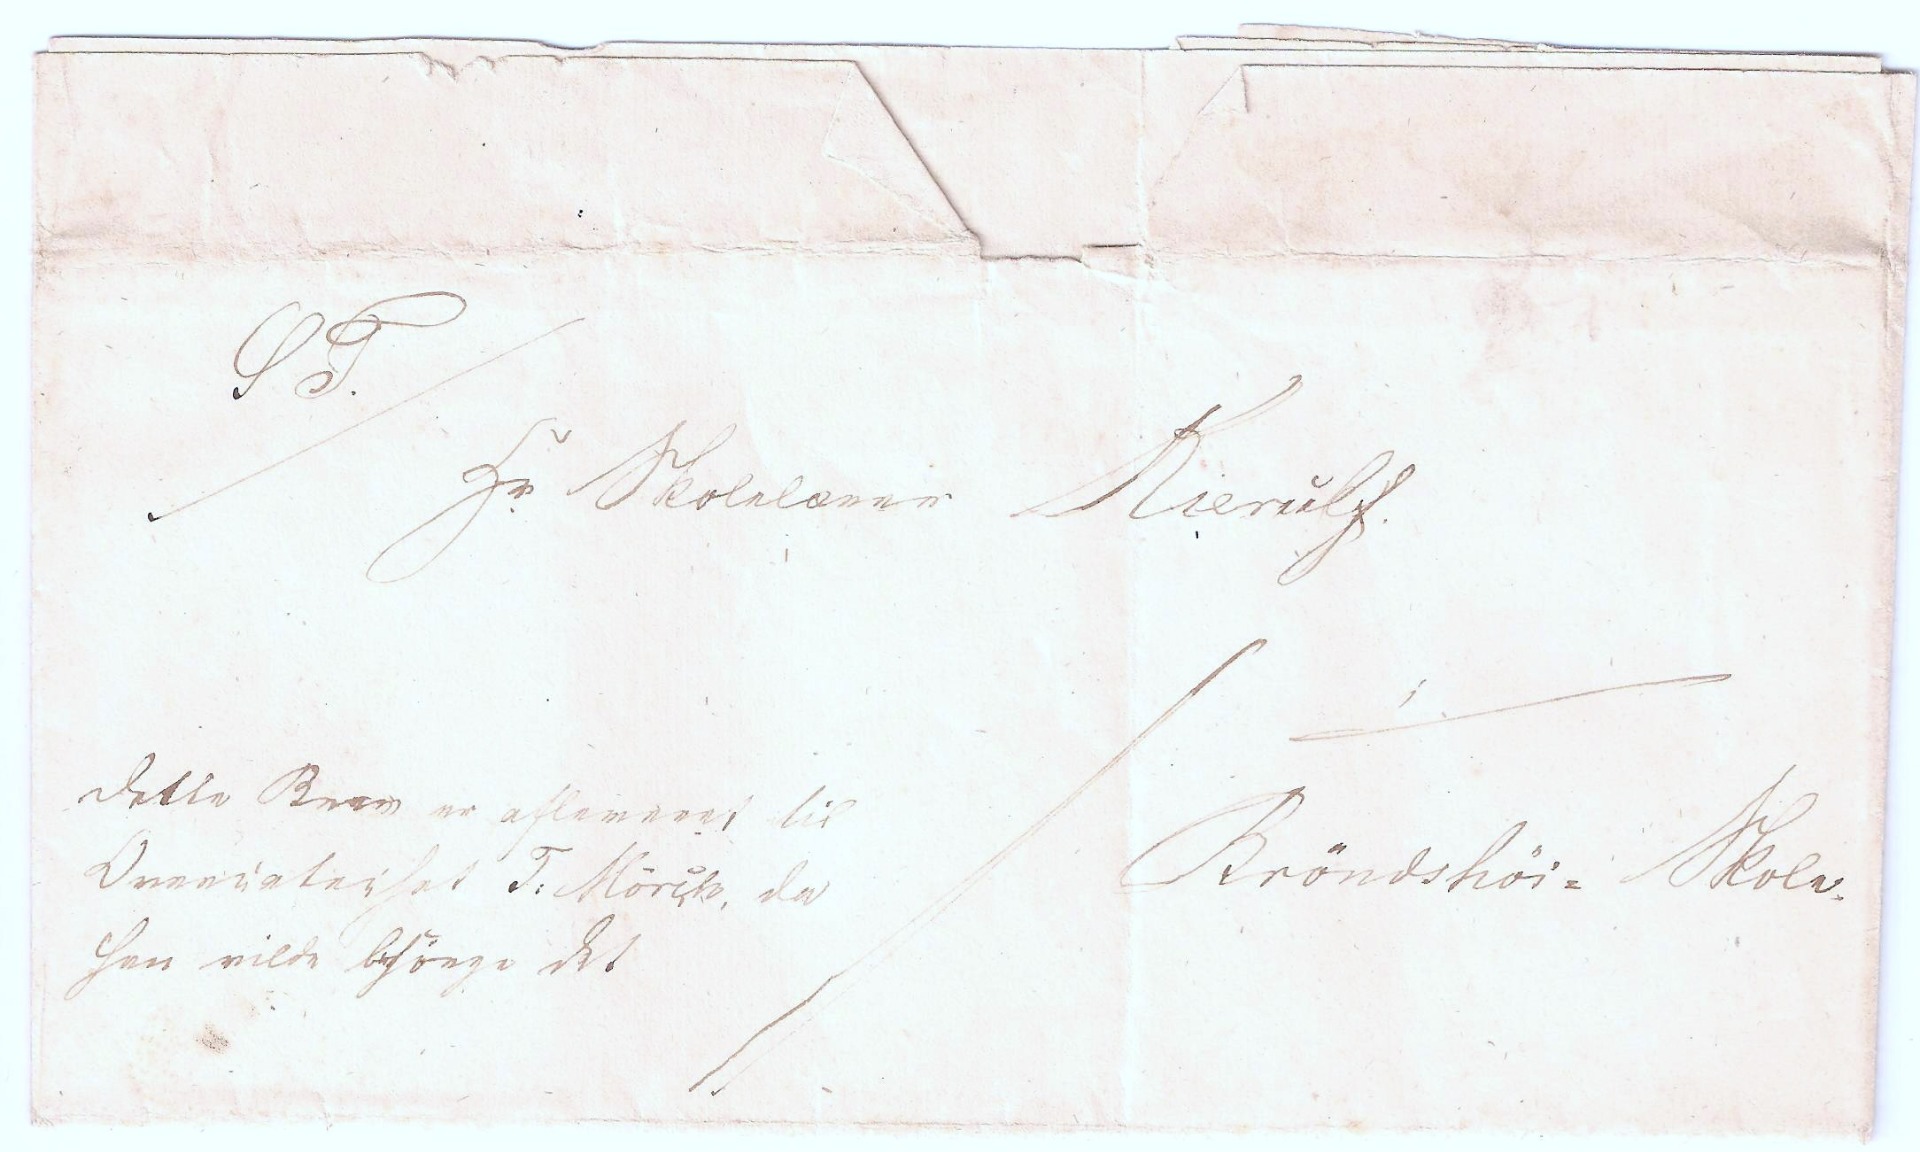 S T.
Hr Skolelærer Kierulf.
i
Bröndshöi= Skole.
dette Brev er afleveret til
T: Mörch, da
han vilde besörge det